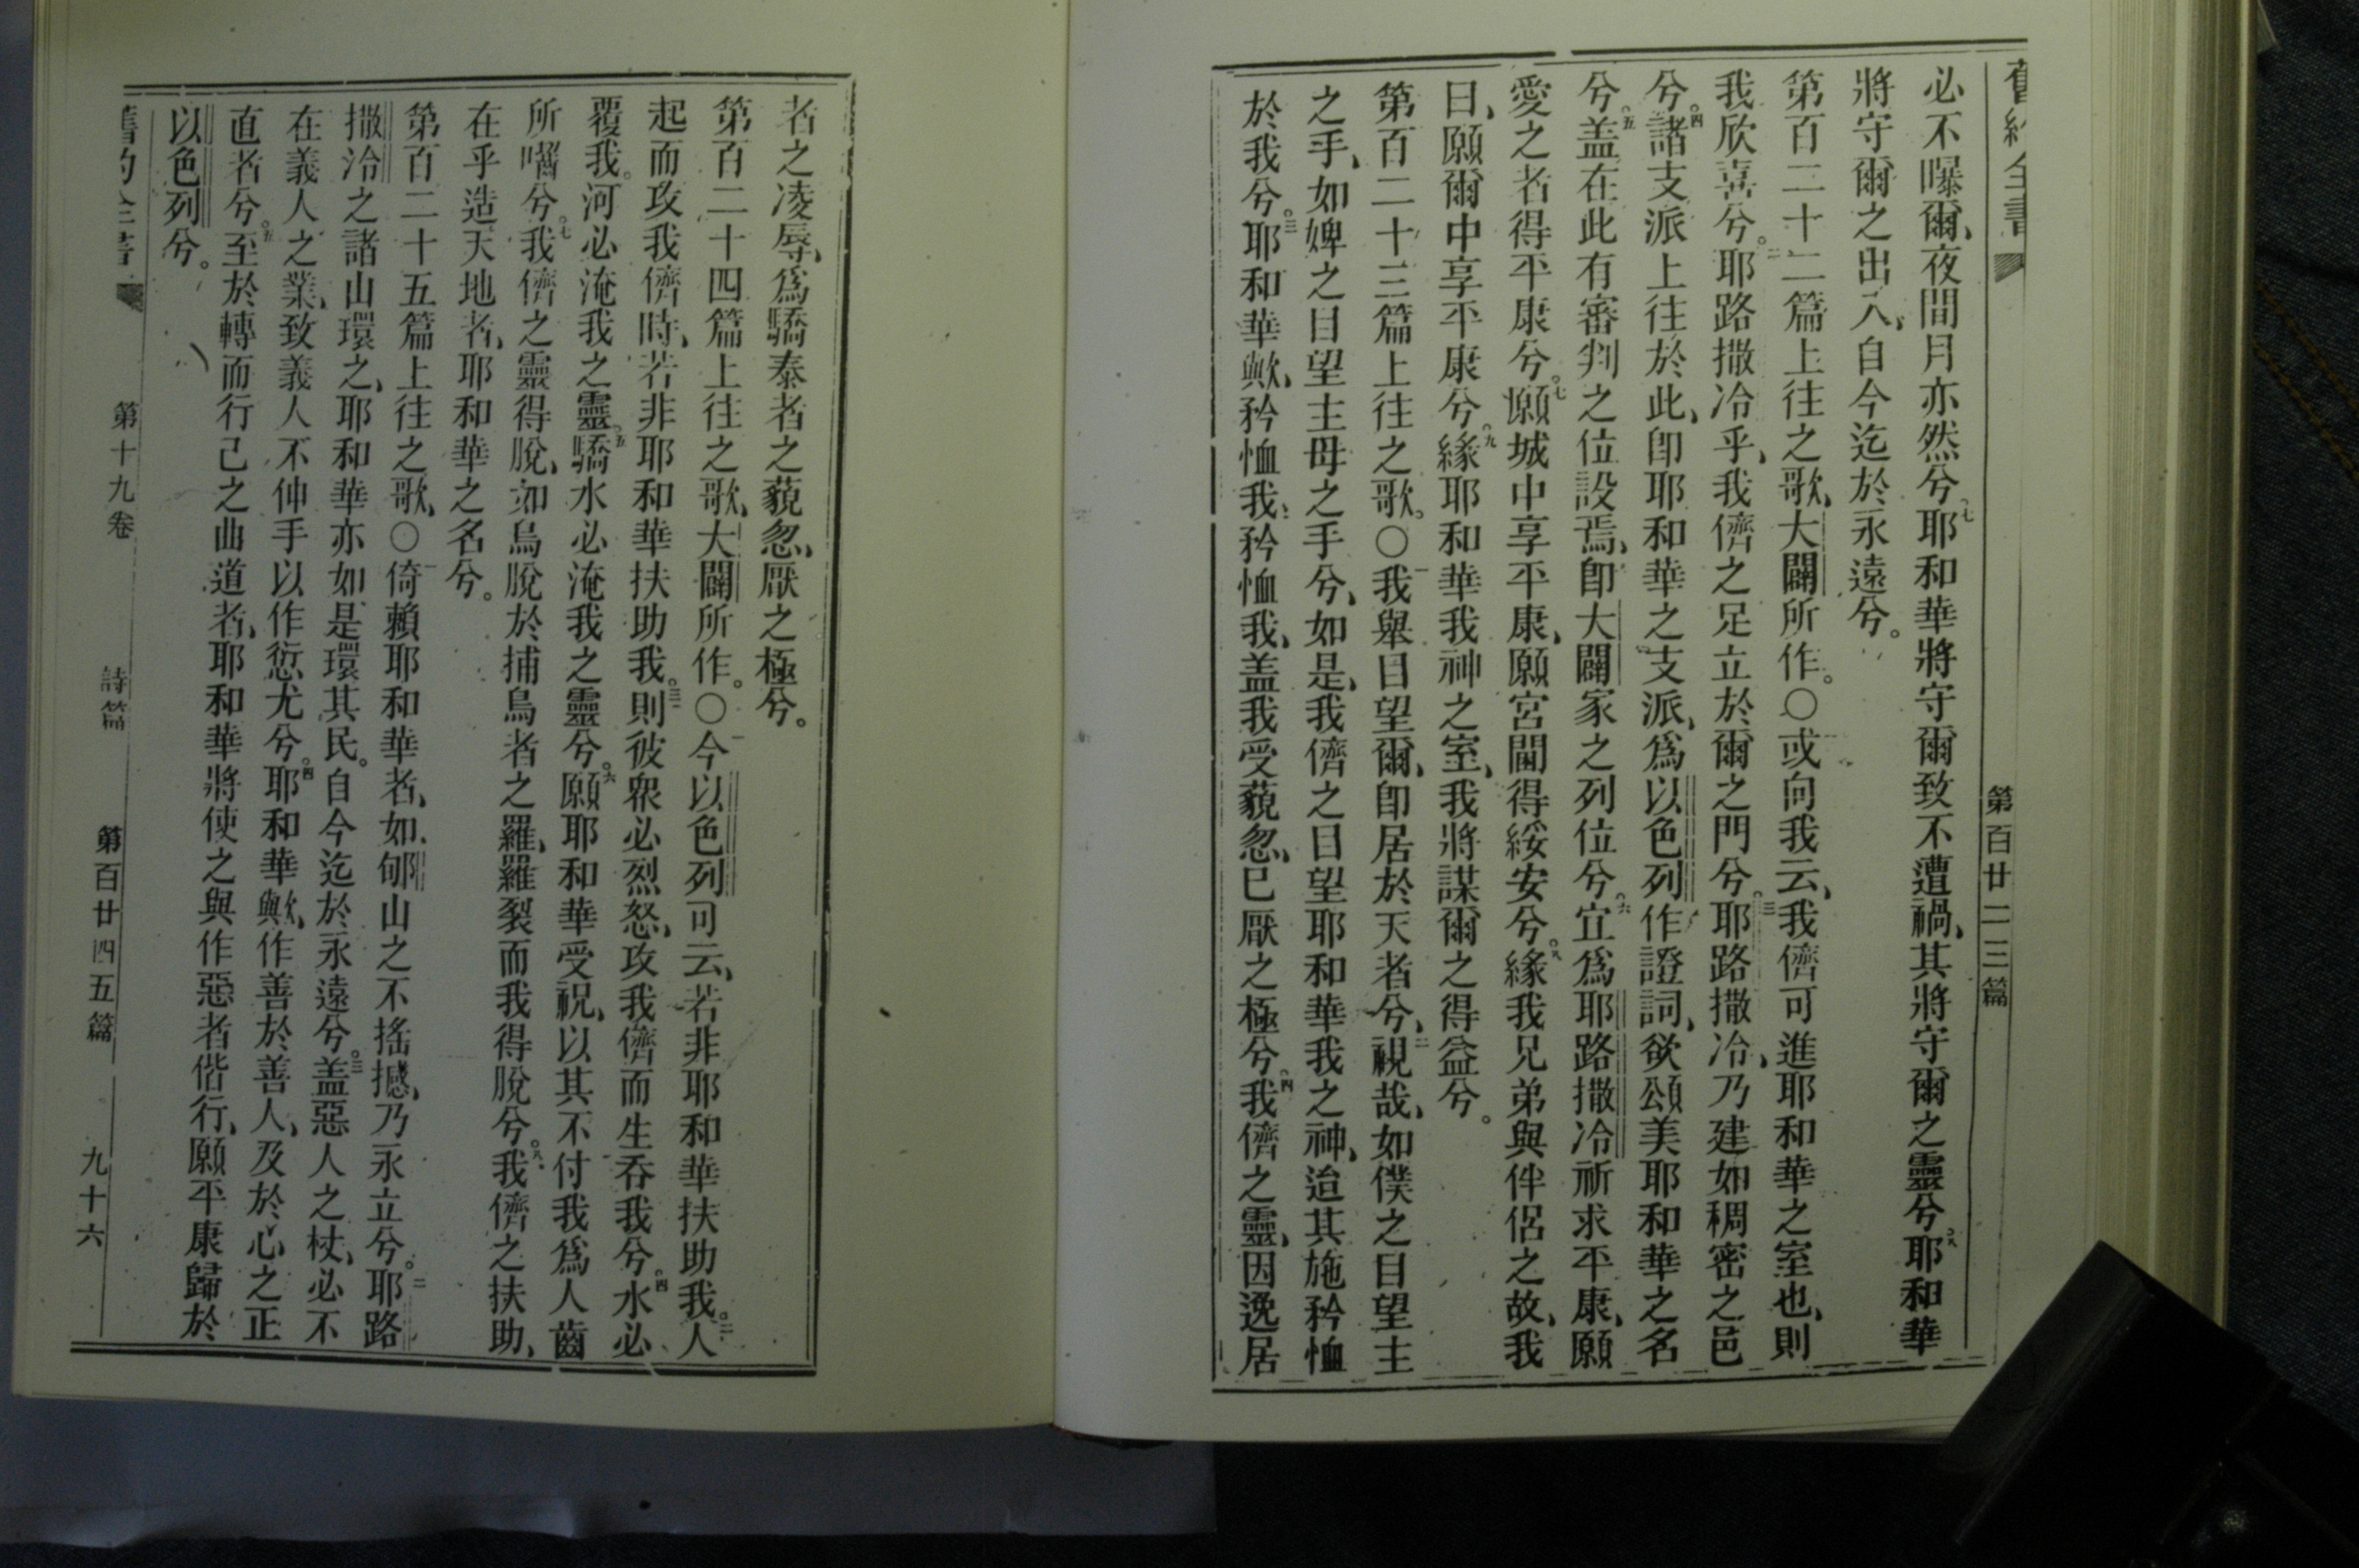 舊約全書
第百廿二三篇
必不曝爾、夜間月亦然兮。七耶和華將守爾致不遭禍、其將守爾之靈兮。八耶和華
將守爾之出入、自今迄於永遠兮。
第百二十二篇上往之歌、大闢所作。〇一或向我云、我儕可進耶和華之室也、則
我欣喜兮。二耶路撒冷乎、我儕之足立於爾之門兮。三耶路撒冷、乃建如稠密之邑
兮。四諸支派上往於此、卽耶和華之支派、爲以色列作證詞、欲頌美耶和華之名
兮。五盖在此有審判之位設焉、卽大闢家之列位兮。六宜爲耶路撒冷祈求平康、願
愛之者得平康兮。七願城中享平康、願宮闈得綏安兮。八緣我兄弟與伴侶之故、我
曰、願爾中享平康兮。九緣耶和華我神之室、我將謀爾之得益兮。
第百二十三篇上往之歌。〇一我舉目望爾、卽居於天者兮、二視哉、如僕之目望主
之手、如婢之目望主母之手兮、如是、我儕之目望耶和華我之神、迨其施矜恤
於我兮。三耶和華歟、矜恤我、矜恤我、盖我受藐忽、已厭之極兮。四我儕之靈、因逸居
者之凌辱、爲驕泰者之藐忽、厭之極兮。
第百二十四篇上往之歌、大闢所作。〇一今以色列可云、若非耶和華扶助我。二人
起而攻我儕時、若非耶和華扶助我。三則彼衆必烈怒、攻我儕而生吞我兮。四水必
覆我。河必淹我之靈。五驕水必淹我之靈兮。六願耶和華受祝、以其不付我爲人齒
所囓兮。七我儕之靈得脫、如鳥脫於捕鳥者之羅、羅裂而我得脫兮。八我儕之扶助、
在乎造天地者、耶和華之名兮。
第百二十五篇上往之歌、〇一倚賴耶和華者、如郇山之不搖撼、乃永立兮。二耶路
撒冷之諸山環之、耶和華亦如是環其民。自今迄於永遠兮。三盖惡人之杖、必不
在義人之業、致義人不伸手以作愆尤兮。四耶和華歟、作善於善人、及於心之正
直者兮。五至於轉而行己之曲道者、耶和華將使之與作惡者偕行、願平康歸於
以色列兮。
舊約全書
第十九卷
詩篇
第百廿四五篇
九十六